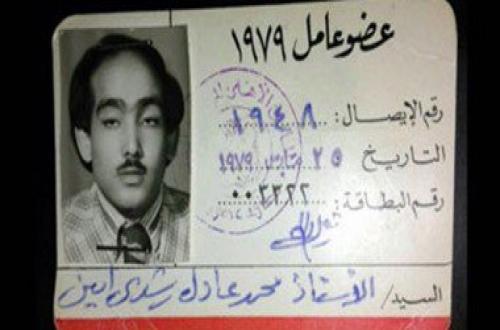 عضو عامل ١٩٧٩
رقم الإيصال: ١٩٤٨
التاريخ ٢٥ مارس ١٩٧٩
رقم البطاقة: ٠٠٣٢٢٢
السيد/ الأستاذ محمد عادل رشدى امين